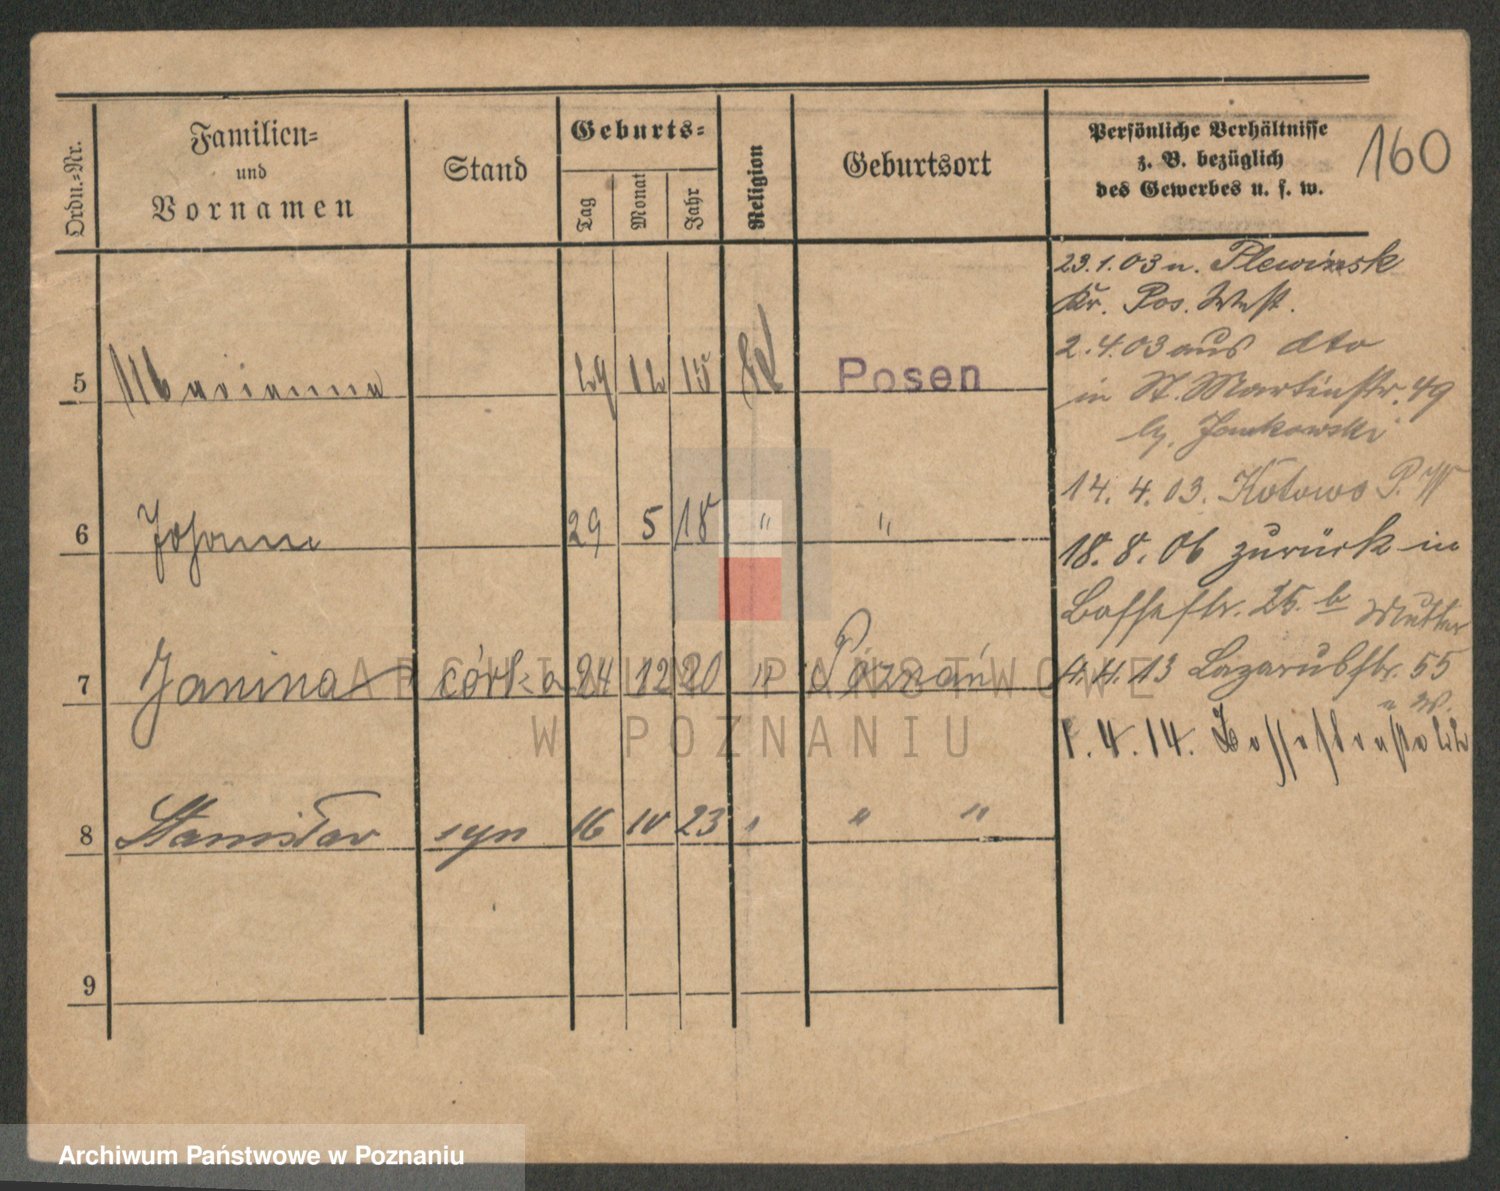 Ordn.-Nr.
Familien-
und
Vornamen
Stand
Geburts-
Tag
Monat
Jahr
Religion
Geburtsort
Persönliche Verhältnisse
z. B. bezüglich
des Gewerbes u. s. w.
160
5 Marianna 29 12 15 Posen
6 Johann 29 5 18 " "
7 Janina córka 24 12 20 " Poznań
8 Stanisław syn 16 10 23 " " "
9
23.1.03 n. Plewinsk
Kr. Pos. West.
2.4.03 aus dto
in St. Martinstr. 49
Jankowski
14. 4. 03. Kotowo P. W
18. 8. 06 zurück in
25. b Mutter
4.4.13 Lazarusstr. 55
1. 4. 14.
ARCHIWUM PAŃSTWOWE
W POZNANIU
Archiwum Państwowe w Poznaniu